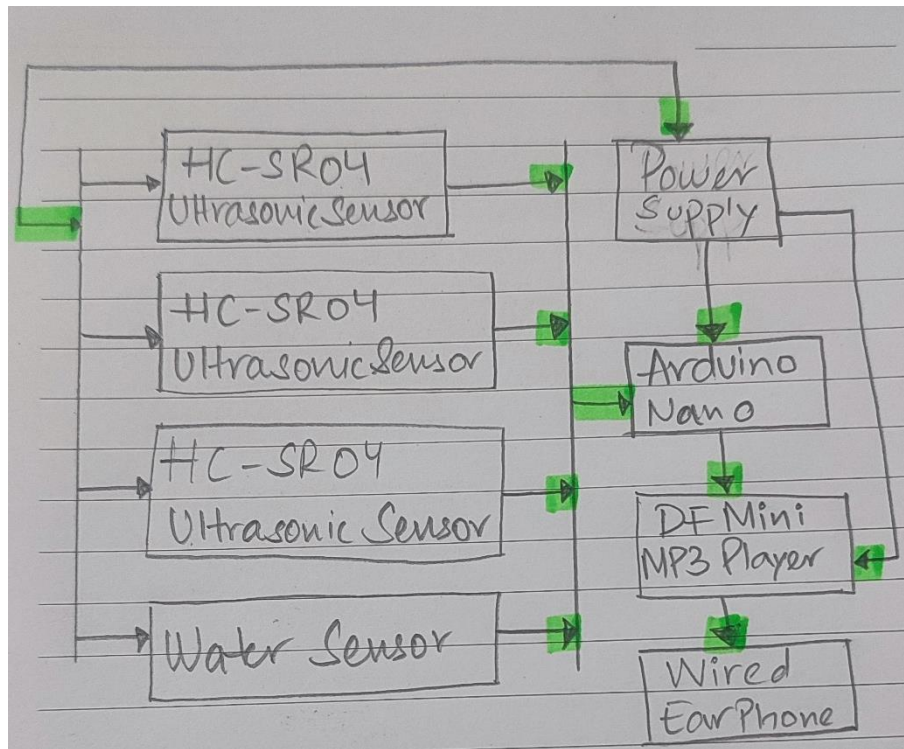 HC-SR04
Ultrasonic Sensor
HC-SR04
Ultrasonic Sensor
HC-SR04
Ultrasonic Sensor
Water Sensor
Power
Supply
Arduino
Nano
DF Mini
MP3 Player
Wired
EarPhone